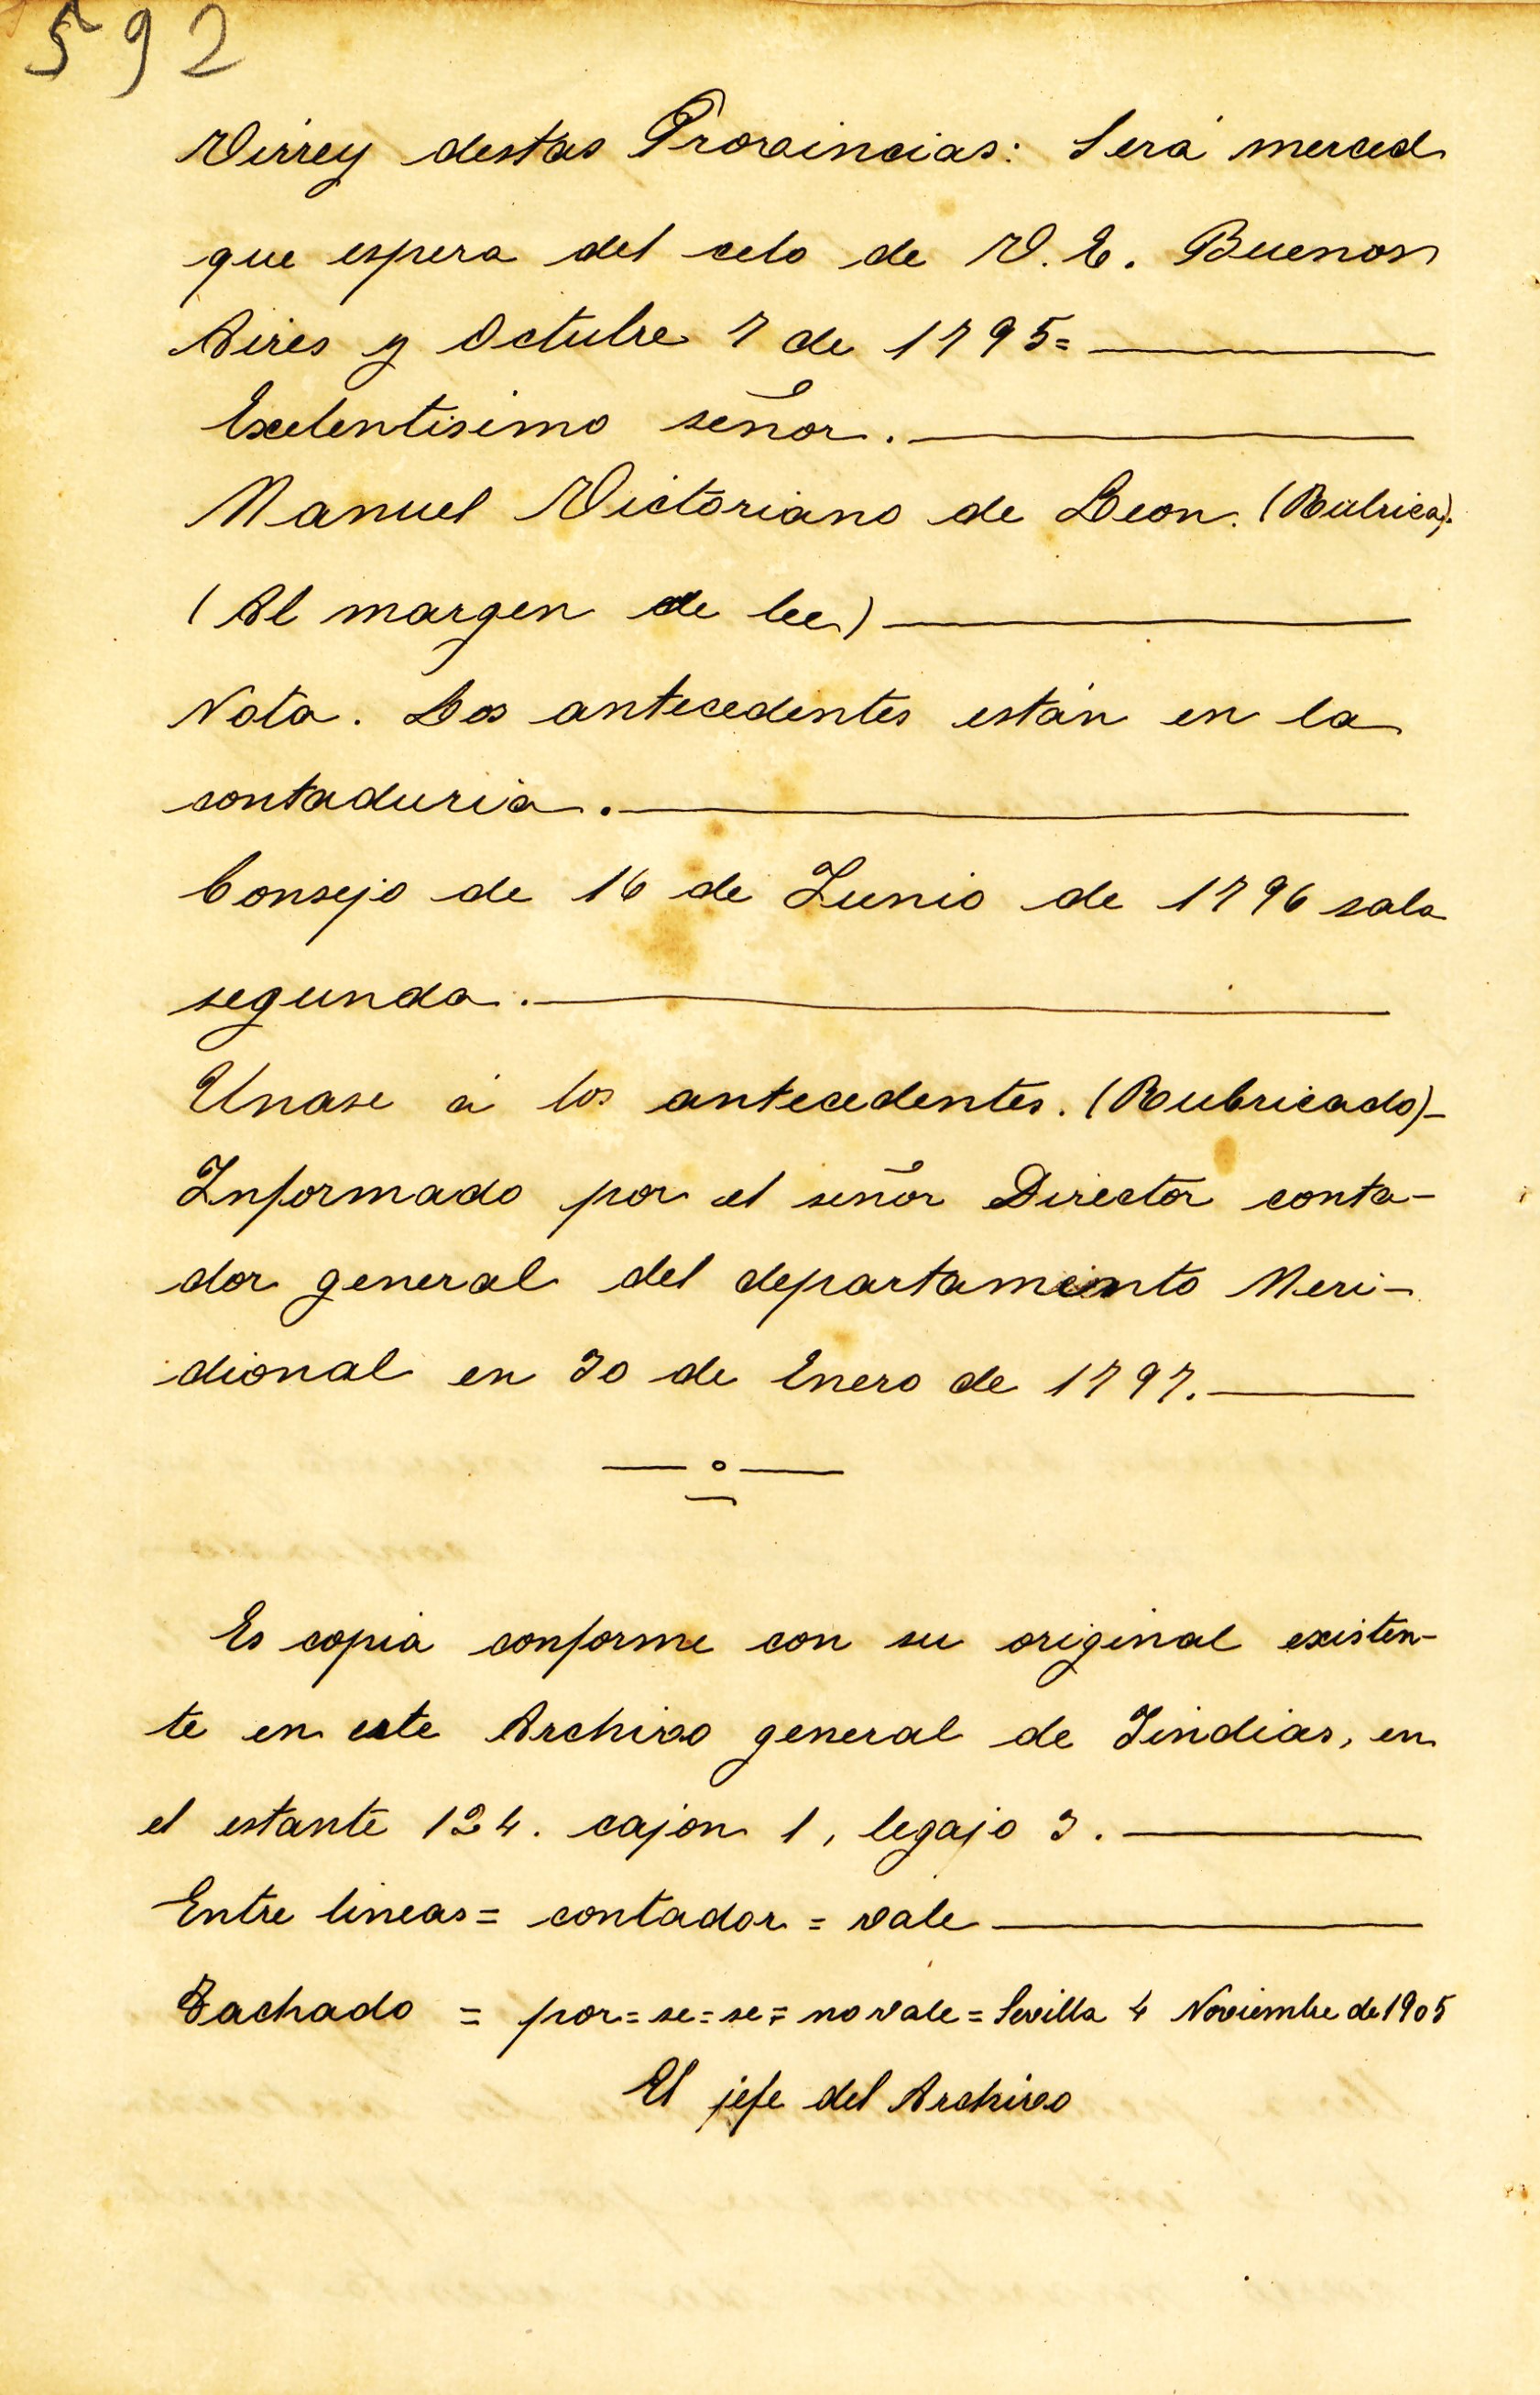 592
Virrey destas Provincias: Será merced
que espera del celo de V. E. Buenos
Aires y Octubre 7 de 1795=
Excelentisimo señor.
Manuel Victoriano de Leon. (Rúbrica).
(Al margen de lee)
Nota. Los antecedentes están en la
contaduria.
Consejo de 16 de Junio de 1796 sala
segunda.
Unase á los antecedentes. (Rubricado)—
Informado por el señor Director conta-
dor general del departamento Meri-
dional en 30 de Enero de 1797.
Es copia conforme con su original existen-
te en este Archivo general de Indias, en
el estante 124. cajon 1, legajo 3.
Entre lineas = contador = vale
Tachado = por = se = se = no vale = Sevilla 4 Noviembre de 1905
El jefe del Archivo